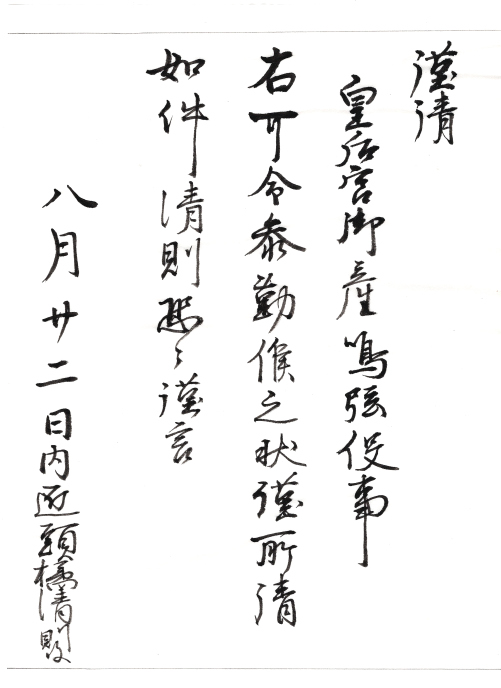 謹請
皇后宮御産鳴弦役事
右可令参勤候之状謹所請
如件清則恐々謹言
八月廿二日内匠頭橘清則